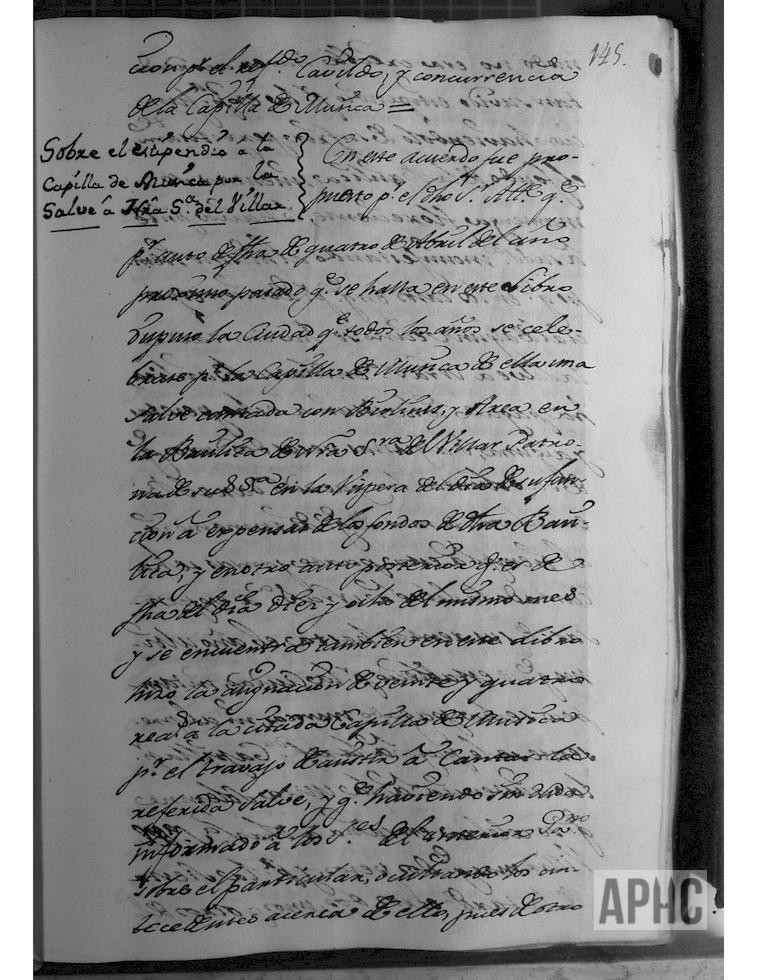 145.
cion pr. el refdo. Cavildo, y concurrencia
de la Capilla de Musica =
Sobre el estipendio a la
Capilla de Musica por la
Salve â Nrâ Sª. del Villar.
En este acuerdo fue pro-
puesto pr. el dho Sr. Alte. qe.
pr. auto de fha de quatro de Abril del año
proximo pasado qe. se halla en este Libro
dispuso la Ciudad qe. todos los años se cele-
brase pr. la Capilla de Musica de ella una
salve cantada con Violines, y Area en
la Basilica de nrâ Sra del Villar Patro-
na de sus Sª en la Vispera del dia de su fun-
cion â expensas de los fondos de dha Basi-
lica, y en otro auto posterior qe. es de
fha del dia diez y ocho del mismo mes
y se encuentra tambien en este Libro
hizo la asignacion de veinte y quatro
reas. â la citada Capilla de Musica
pr. el travajo de asistir â Cantar la
referida Salve, y qe. haviendo sin duda
informado â los Sres del anterior Govno.
sobre el particular, ocultando los an-
tecedentes acerca de ello, pues de otro
APHC